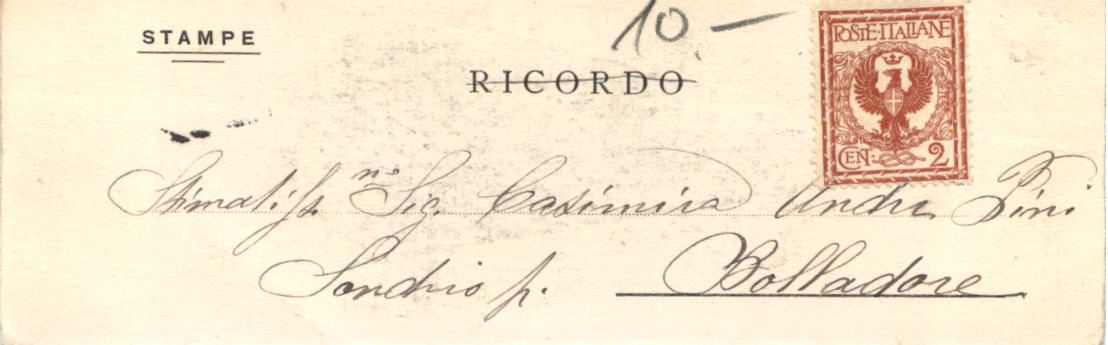 10 –
STAMPE
POSTE·ITALIANE
RICORDO
CEN: 2
Stimatiss. no Sig. Casimira Andre Pini
Sondrio p. Bolladore